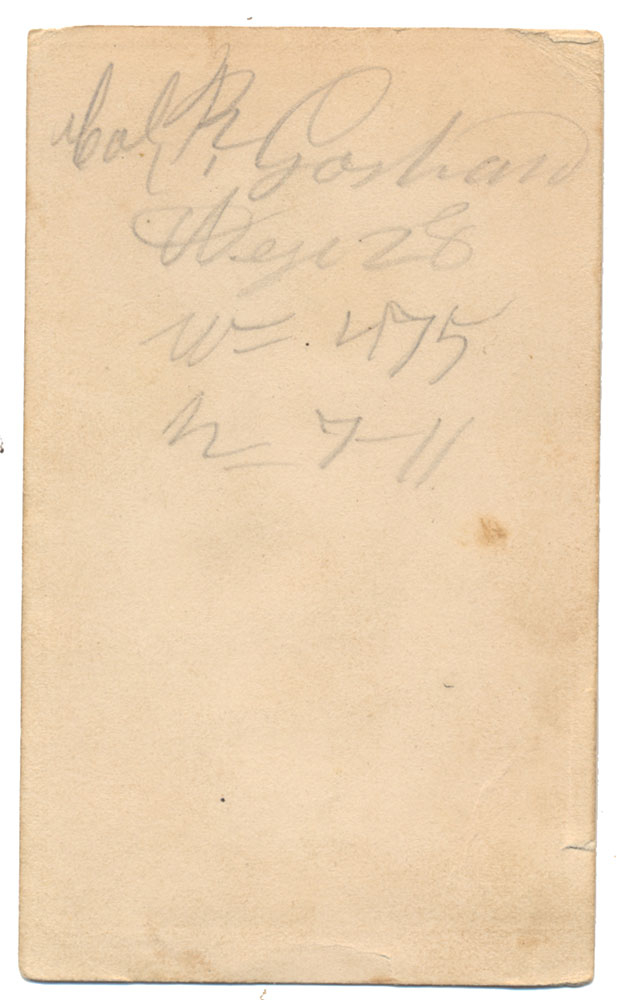 Col, R, Goshaw
Age 28
W= 475
h= 7-11